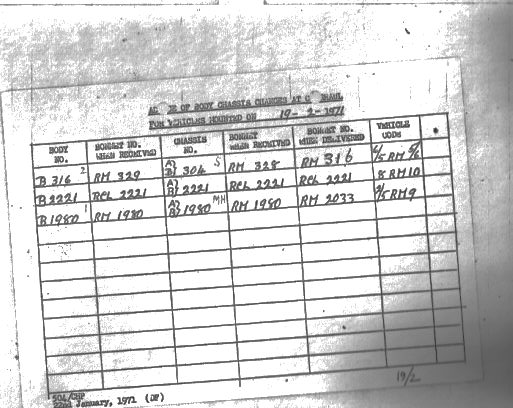 OF BODY CHASSIS CHANGES AT
FOR VEHICLES MOUNTED ON 19-2-1971
BODY NO. BONNET NO. WHEN RECEIVED CHASSIS NO. BONNET WHEN RECEIVED BONNET NO. WHEN DELIVERED VEHICLE CODE
B 316 2 RM 329 A) B) 304 S RM 328 RM 316 4/5 RM 5/6
B2221 RCL 2221 A) B) 2221 RCL 2221 RCL 2221 8 RM10
B1980 1 RM 1980 A) B) 1980 MH RM 1980 RM 2033 2/5 RM9
19/2
504/CHP
22nd January, 1971 (DF)